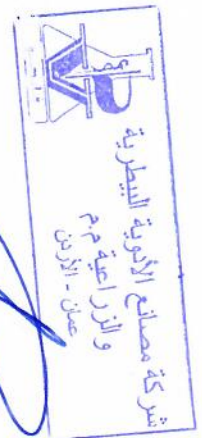 شركة مصانع الأدوية البيطرية
والزراعية م.م
عمان - الأردن